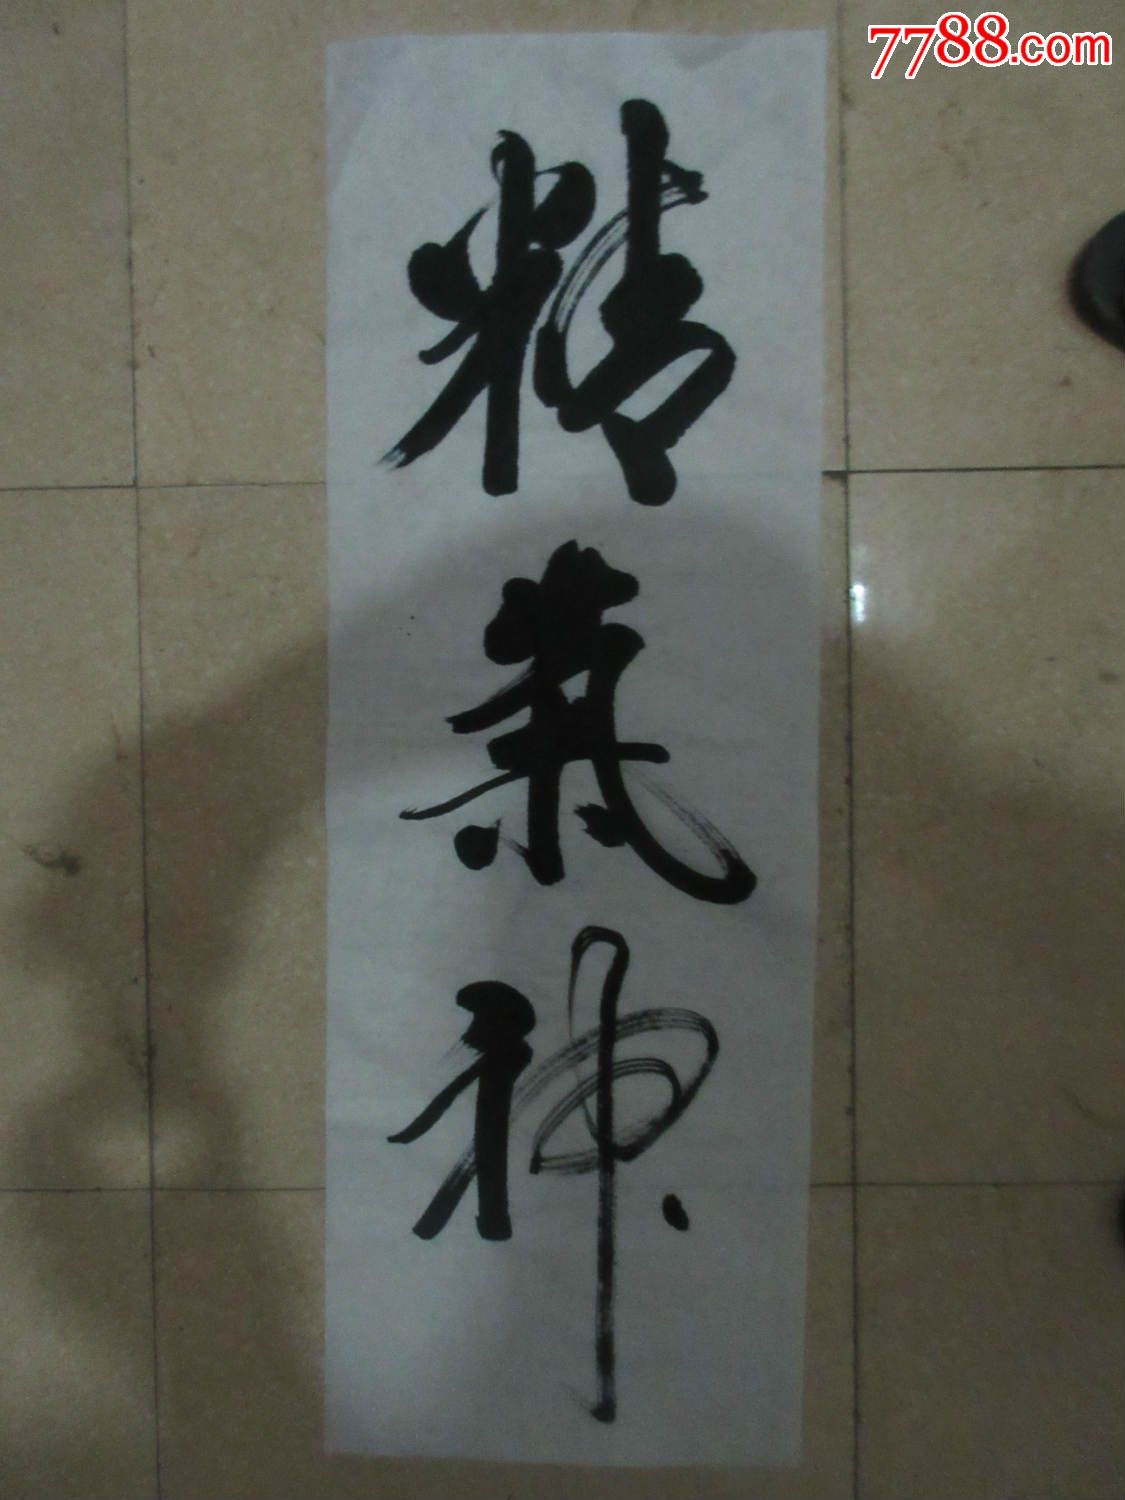 7788.com
精
氣
神